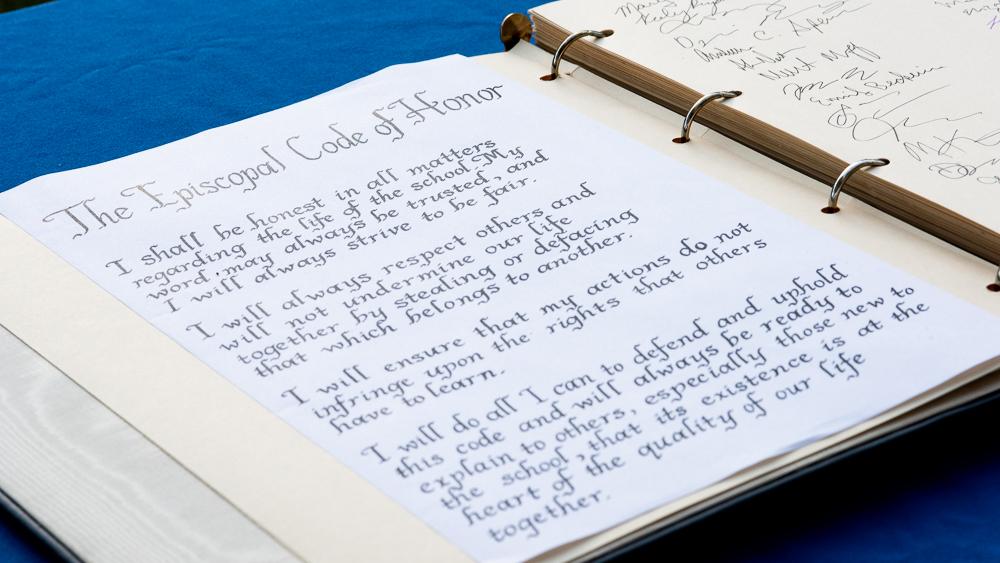 The Episcopal Code of Honor
I shall be honest in all matters
regarding the life of the school. My
word may always be trusted, and
I will always strive to be fair.
I will always respect others and
will not undermine our life
together by stealing or defacing
that which belongs to another.
I will ensure that my actions do not
infringe upon the rights that others
have to learn.
I will do all I can to defend and uphold
this code and will always be ready to
explain to others, especially those new to
the school, that its existence is at the
heart of the quality of our life
together.